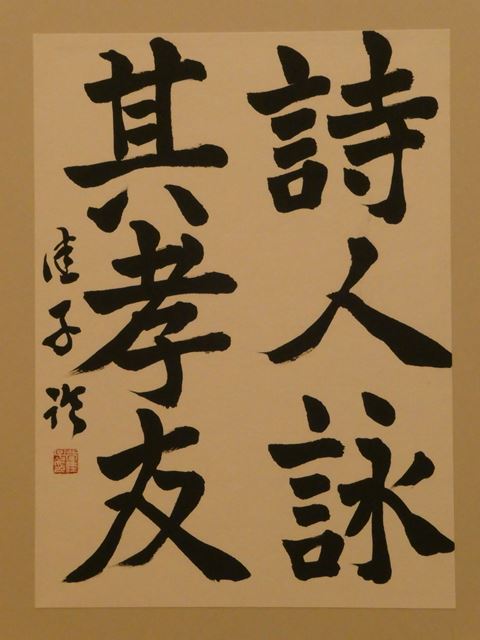 詩人詠
其孝友
佳子